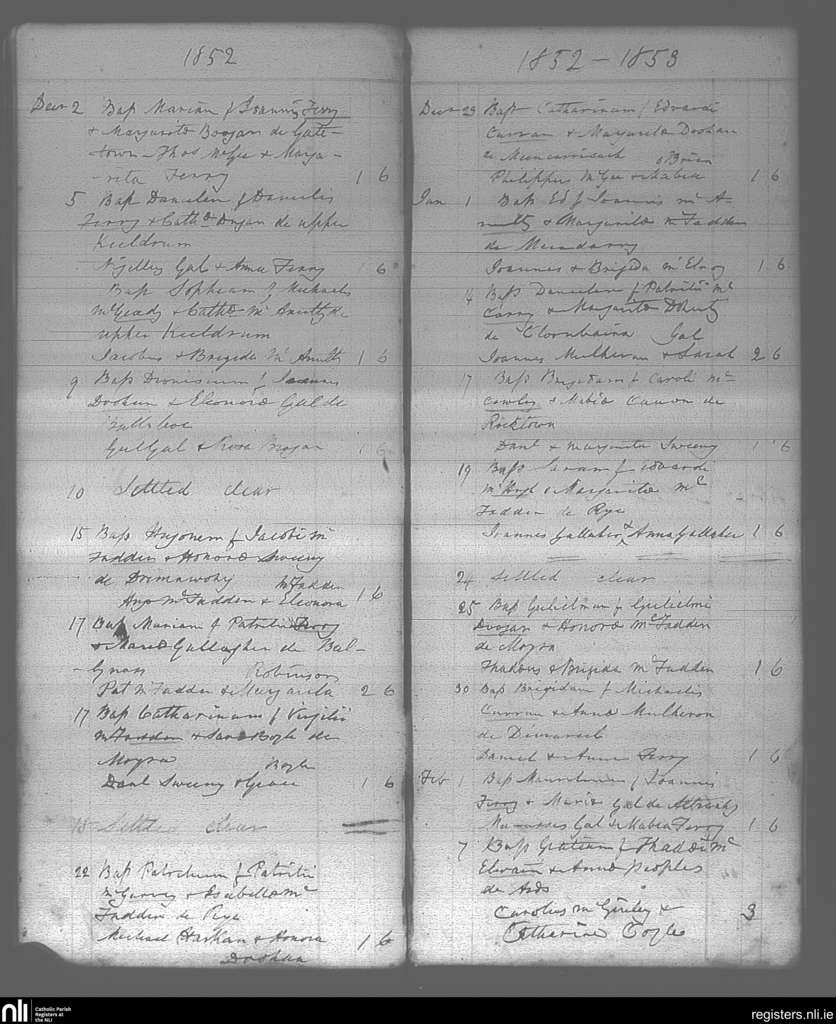 1852
Decr 2 Bap Mariam f Joannis Ferry
& Margarita Boogan de Gate-
-town - Thos McGee & Marga-
-rita Ferry 1 6
5 Bap Danielem f Danielis
Ferry & Cath Dugan de upper
Keeldrum
Gal & Anna Ferry 1 6
Bap Sophiam f Michaelis
McGeady & Cath Mc
upper Keeldrum
Jacobus & Brigida Mc Anulty 1 6
9 Bap Dionisium f Joannis
Doohan & Eleonora Gal de
Gul Gal & Rosa Brogan 1 6
10 Settled clear
15 Bap Hugonem f Jacobi Mc
Fadden & Honora Sweeny
de
McFadden
Hugo McFadden & Eleonora 1 6
17 Bap Mariam f Patritii Ferry
& Maria Gallagher de Bal-
-Gnass Robinson
Pat McFadden & Margarita 2 6
17 Bap Catharinam f Virgilii
McFadden & Sara Boyle de
Moyra Boyle
Danl Sweeny & Grace 1 6
18 Settled clear
22 Bap Patricium f Patritii
McGarvey & Isabella Mc
Fadden de Rye
Michael Harkan & Honora 1 6
Doohan
1852 - 1853
Decr 23 Bapt Catharinam f Edvardi
Curran & Margarita Doohan
de O'Brien
Philippus McGee & Mabia 1 6
Jan 1 Bap Ed f Joannis Mc A-
nulty & Margarita McFadden
de
Joannes & Brigida McElroy 1 6
Bap Danielem f Patritii Mc
Carry & Margarita Doherty
de Gal
Joannes Mulhern & Sarah 2 6
17 Bap Brigidam f Caroli Mc
& Mabia Curran de
Rocktown
Danl & Margarita Sweeny 1 6
19 Bap Saram f Edvardi
McHugh & Margarita Mc
Fadden de Rye
Joannes Gallaher & Anna Gallaher 1 6
24 Settled clear
25 Bap Gulielmum f Gulielmi
Doogan & Honora McFadden
de Moyra
Thadeus & Brigida McFadden 1 6
30 Bap Brigidam f Michaelis
Curran & Anna Mulheron
de
Daniel & Anna Ferry 1 6
Feb 1 Bap f Joannis
Ferry & Maria Gal de
Gal & Mabia Ferry 1 6
7 Bap Gratiam f Thaddei Mc
Elwain & Anna Peoples
de Ards
Carolus McGinley &
Catharine Coyle 3
nli
Catholic Parish
Registers at
the NLI
registers.nli.ie